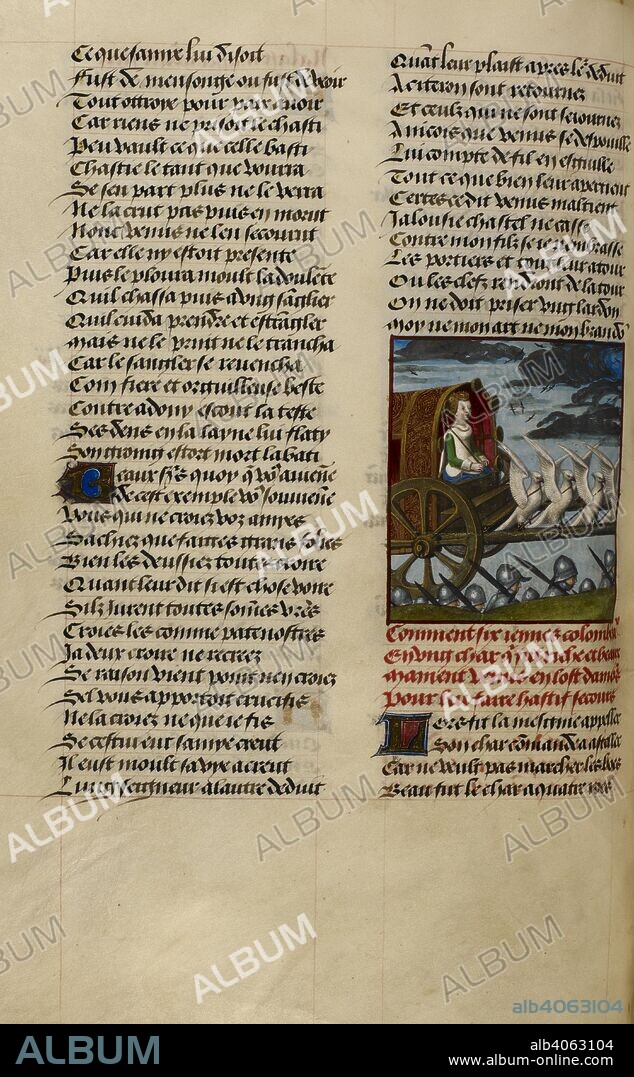 Ce que samye lui disoit
Fust de mensonge ou fust de veoir
Tout ottroye pour paix avoir
Car riens ne prisoit le chasti
Peu vault ce que celle basti
Chastie le tant que pourra
Se sen part plus ne le verra
Ne la crut pas puis en morut
Nonc venus ne len secourut
Car elle ny estoit presente
Puis le ploura moult la doulete
Quil chassa puis a vng sãglier
Quil cuida prendre et estrãgler
Mais ne le print ne le trancha
Car le sanglier se revencha
Com fiere et orguilleuse beste
Contre adony escout la teste
Ses dens en la layne lui flaty
Son groing estort mort labati
Beaux srs quoy q̃ võ aviene
De cest exemple võ souviene
Vous qui ne croiez voz amyes
Sachiez que faictes grans folies
Bien les deussiez toutes croire
Quant leur dit si est chose voire
Silz jurent toutes somes vr̃es
Croies les comme patenostres
Ja deux croire ne recreez
Se raison vient point nen croiez
Sel vous apportoit crucifis
Ne la croiez ne que ie fis
Se cestui eut samye creut
Il eust moult sa vye acreut
Lung seigneur a lautre deduit
Quãt leur plaist apres le deduit
A citeron sont retournez
Et ceulz qui ne sont seiournez
Aincois que venus se despouille
Lui compte de fil en esguille
Tout ce que bien leur apartient
Certes ce dit venus mal tient
Jalousie chastel ne casse
Contre mon filz se je nembrasse
Les portiers et tout leur atour
Ou les clefz rendront de la tour
On ne doit priser vng lardon
Moy ne mon arc ne mon brandõ
Comment six iennes colombes
En vng char q̃ moult est beau
Mainent venus en lost damõs
Pour lui faire hastif secours
Lors fit la mesgnie appeller
Son char cõmanda asteller
Car ne veult pas marcher les boes
Beau fut le char a quatre roes
ALBUM
alb4063104
ALBUM
alb4063104
www.album-online.com